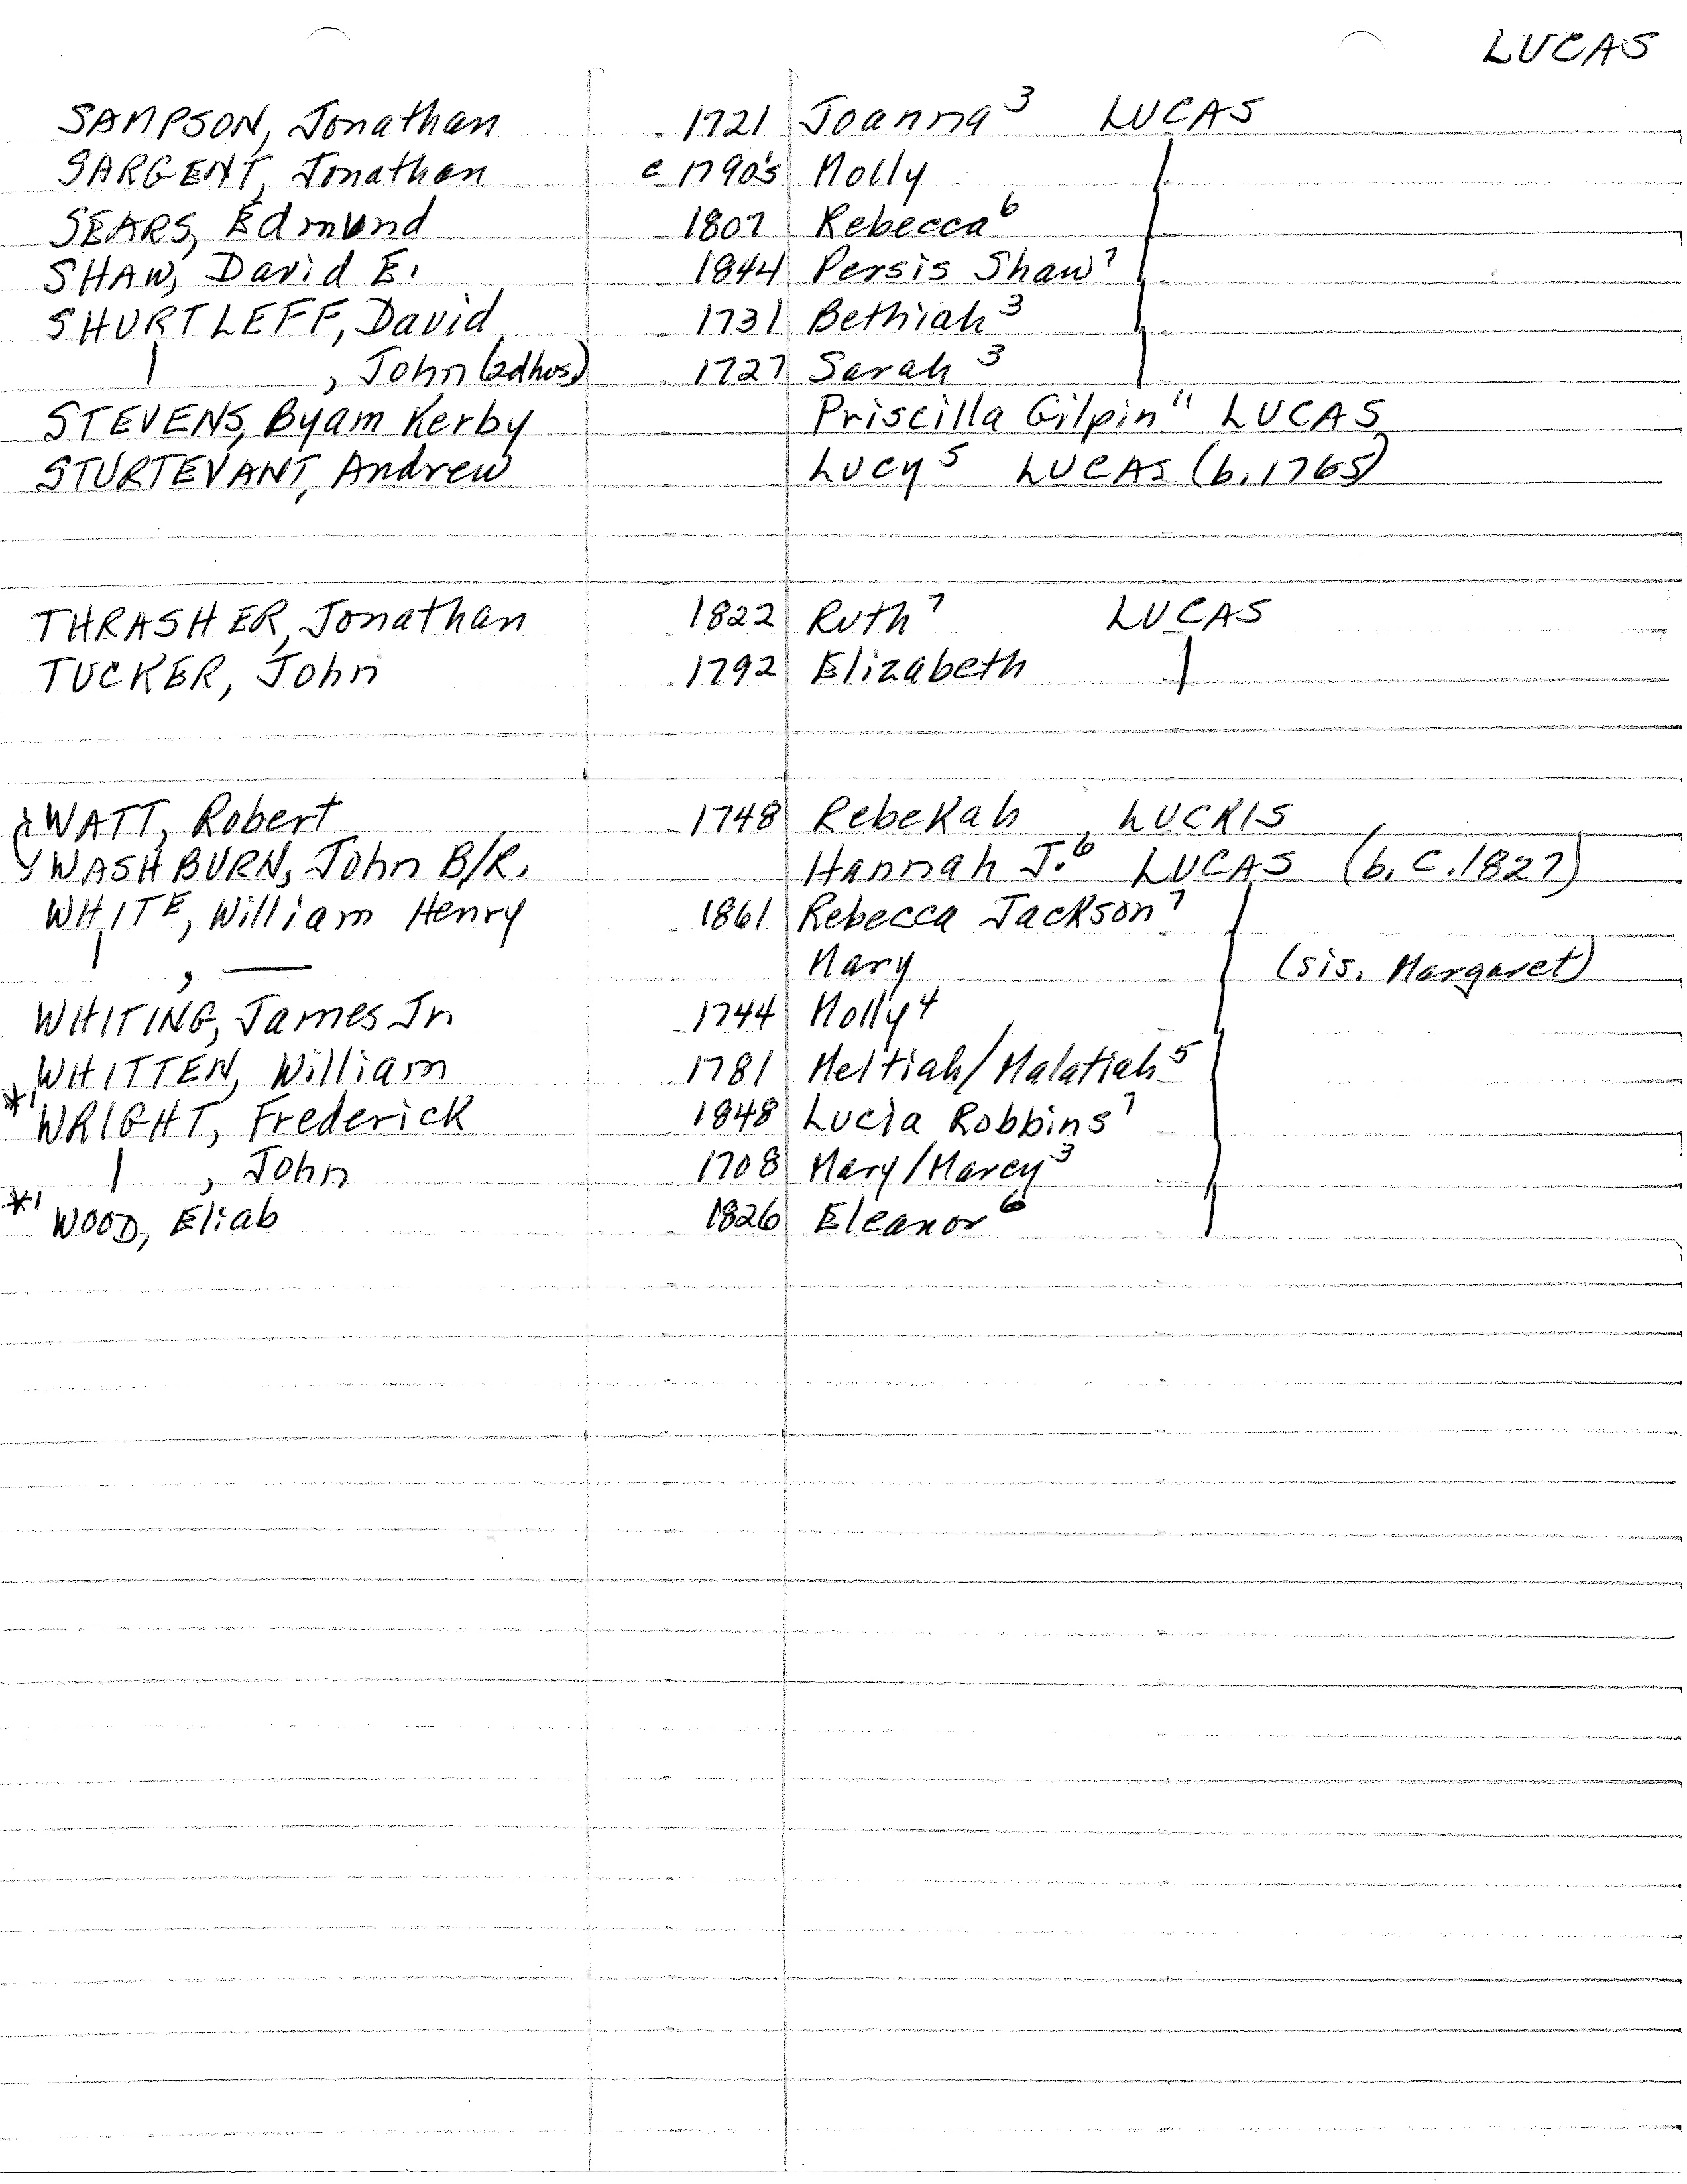 LUCAS
SAMPSON, Jonathan 1721 Joanna³ LUCAS
SARGENT, Jonathan c 1790's Molly |
SEARS, Edmund 1807 Rebecca⁶ |
SHAW, David E. 1844 Persis Shaw⁷ |
SHURTLEFF, David 1731 Bethiah³ |
| , John (2d hus.) 1727 Sarah³ |
STEVENS, Byam Kerby Priscilla Gilpin¹¹ LUCAS
STURTEVANT, Andrew Lucy⁵ LUCAS (b. 1765)
THRASHER, Jonathan 1822 Ruth⁷ LUCAS
TUCKER, John 1792 Elizabeth |
WATT, Robert 1748 Rebekah LUCRIS
WASHBURN, John B/R. Hannah J.⁶ LUCAS (b. c. 1827)
WHITE, William Henry 1861 Rebecca Jackson⁷ |
| , — Mary | (sis. Margaret)
WHITING, James Jr. 1744 Molly⁴ |
WHITTEN, William 1781 Meltiah/Malatiah⁵ |
*¹ WRIGHT, Frederick 1848 Lucia Robbins⁷ |
| , John 1708 Mary/Marcy³ |
*¹ WOOD, Eliab 1826 Eleanor⁶ |